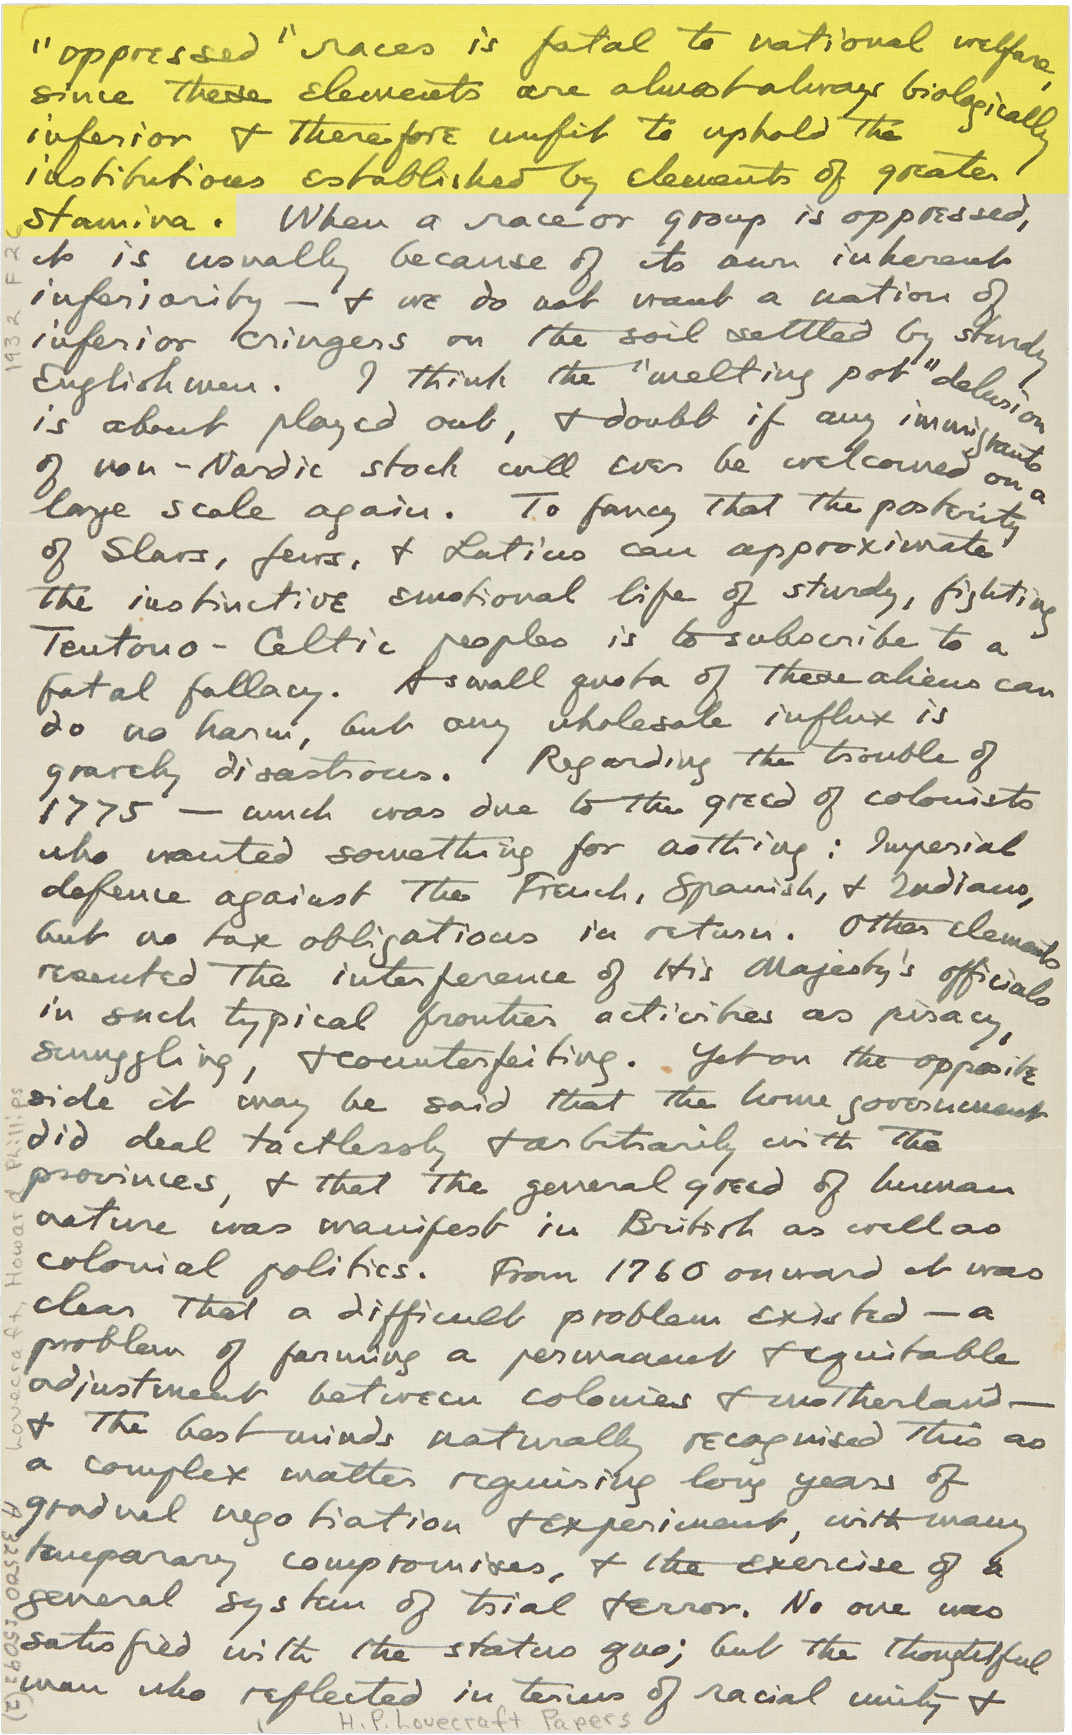 "oppressed" races is fatal to national welfare,
since these elements are almost always biologically
inferior & therefore unfit to uphold the
institutions established by elements of greater
stamina. When a race or group is oppressed,
it is usually because of its own inherent
inferiority — & we do not want a nation of
inferior cringers on the soil settled by sturdy
Englishmen. I think the "melting pot" delusion
is about played out, & doubt if any immigrants
of non-Nordic stock will ever be welcomed on a
large scale again. To fancy that the posterity
of Slavs, Jews, & Latins can approximate
the instinctive emotional life of sturdy, fighting
Teutono-Celtic peoples is to subscribe to a
fatal fallacy. A small quota of these aliens can
do no harm, but any wholesale influx is
gravely disastrous. Regarding the trouble of
1775 — much was due to the greed of colonists
who wanted something for nothing: Imperial
defence against the French, Spanish, & Indians,
but no tax obligations in return. Other elements
resented the interference of His Majesty's officials
in such typical frontier activities as piracy,
smuggling, & counterfeiting. Yet on the opposite
side it may be said that the home government
did deal tactlessly & arbitrarily with the
provinces, & that the general greed of human
nature was manifest in British as well as
colonial politics. From 1760 onward it was
clear that a difficult problem existed — a
problem of forming a permanent & equitable
adjustment between colonies & motherland —
& the best minds naturally recognised this as
a complex matter requiring long years of
gradual negotiation & experiment, with many
temporary compromises, & the exercise of a
general system of trial & error. No one was
satisfied with the status quo; but the thoughtful
man who reflected in terms of racial unity &
H.P. Lovecraft Papers
1932 F 26
Lovecraft, Howard Phillips